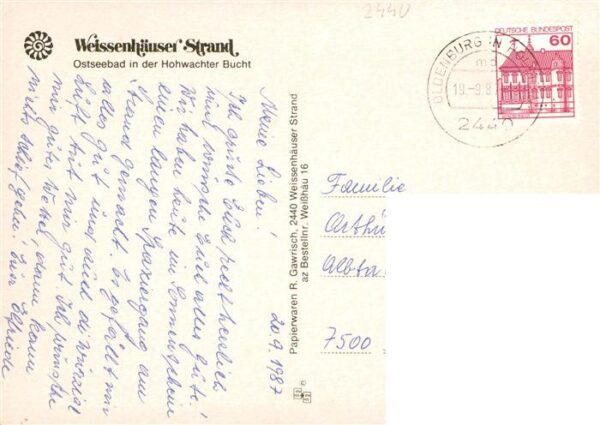 2440
Weissenhäuser Strand
Ostseebad in der Hohwachter Bucht
20.9.1987
Meine Lieben!
Ich grüße Euch recht herzlich
und wünsche Euch alles Gute!
Wir haben heute im Sonnenschein
einen langen Spaziergang am
Strand gemacht. Es gefällt mir
alles gut und auch die würzige
Luft tut mir gut. Ich wünsche
mir gutes Wetter, dann kann
nichts schief gehn! Eure Elfriede
Papierwaren R. Gawrisch, 2440 Weissenhäuser Strand
az Bestellnr. Weißhäu 16
DEUTSCHE BUNDESPOST
60
OLDENBURG IN HOL
19.-9.8
2440
Familie
7500